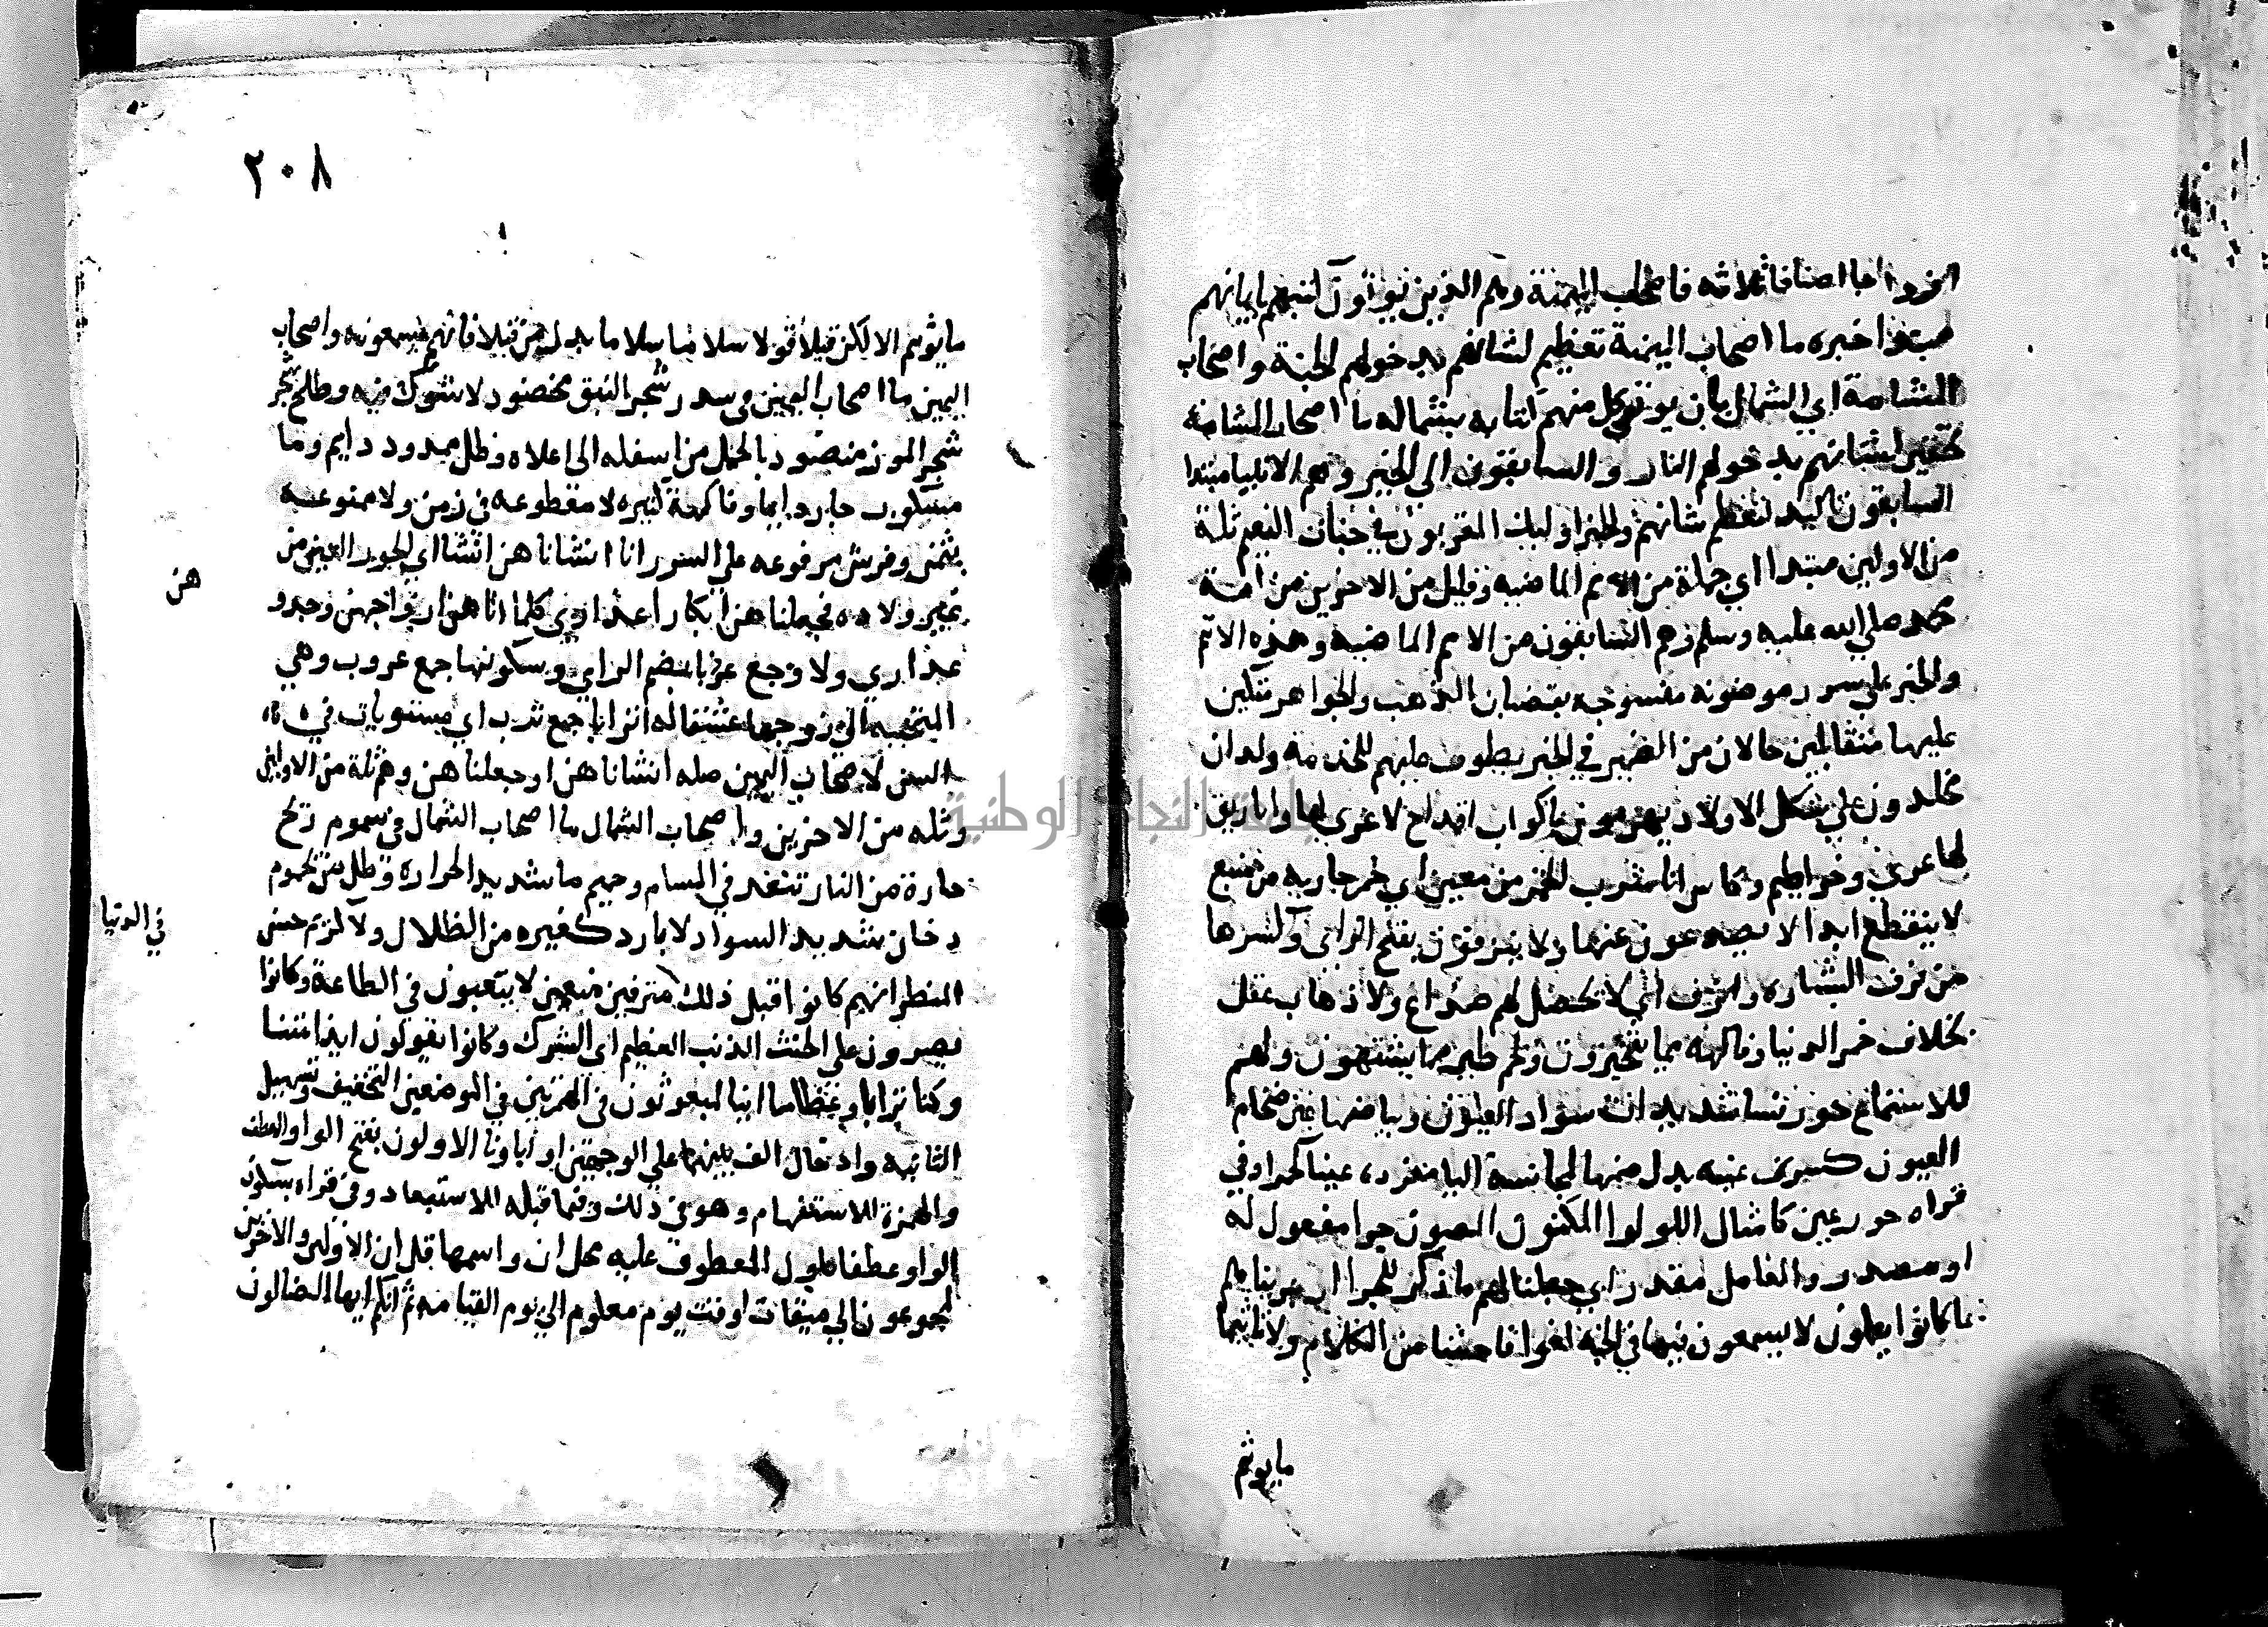 ازواجا اصنافا ثلاثه فاصحاب الميمنة وهم الذين يوتون كتبهم بايمانهم
مبتدا خبره ما اصحاب الميمنة تعظيم لشانهم بدخولهم الجنة واصحاب
المشامة اي الشمال بان يوتى كل منهم كتابه بشماله ما اصحاب المشامة
تحقير لشانهم بدخولهم النار والسابقون الى الخير وهم الانبيا مبتدا
السابقون تاكيد لتعظيم شانهم والخبر اوليك المقربون في جنات النعيم ثلة
من الاولين مبتدا اي جملة من الامم الماضيه وقليل من الاخرين من امة
محمد صلي الله عليه وسلم وهم السابقون من الامم الماضيه وهذه الامم
والخبر علي سرر موضونه منسوجه بقضبان الذهب والجواهر متكين
عليها متقابلين حالان من الضمير في الخبر يطوف عليهم للخدمة ولدان
مخلدون علي شكل الاولاد لا يهرمون باكواب اقداح لا عري لها واباريق
لها عري وخراطيم وكاس انا شرب الخمر من معين اي خمر جاريه من منبع
لا ينقطع ابدا لا يصدعون عنها ولا ينزفون بفتح الزاي وكسرها
من نزف الشارب وانزف اي لا يحصل لهم صداع ولا ذهاب عقل
بخلاف خمر الدنيا وفاكهه مما يتخيرون ولحم طير مما يشتهون ولهم
للاستمتاع حور نسا شديدات سواد العيون وبياضها عين ضخام
العيون كسرت عينه بدل ضمها لمجانسة اليا مفرده عينا كحمرا وفي
قراه حور عين كامثال اللولوا المكنون المصون جزا مفعول له
او مصدر والعامل مقدر اي جعلنا لهم ما ذكر للجزا او جزيناهم
بما كانوا يعلمون لا يسمعون فيها في الجنة لغوا فاحشا من الكلام ولا تاثيما
مايوثم
٢٠٨
مايوثم الا لكن قيلا قولا سلاما سلاما بدل من قيلا فانهم يسمعونه واصحاب
اليمين ما اصحاب اليمين في سدر شجر النبق مخضود لا شوك فيه وطلح شجر
شجر الموز منضود بالحمل من اسفله الى اعلاه وظل ممدود دايم وما
مسكوب جار دايما وفاكهة كثيره لا مقطوعه في زمن ولا ممنوعه
بثمن وفرش مرفوعه علي السرر انا انشاناهن انشا اي الحور العين من
غير ولاده فجعلناهن ابكارا عذاري كلما اتاهن ازواجهن وجدو
هن
عذاري ولا وجع عربا بضم الراي وسكونها جمع عروب وهي
المتحببه الى زوجها عشقا له اترابا جمع ترب اي مستويات في
السن لاصحاب اليمين صله انشاناهن او جعلناهن وهم ثلة من الاولين
وثله من الاخرين واصحاب الشمال ما اصحاب الشمال في سموم ريح
حارة من النار تنفد في المسام وحميم ما شديد الحراره وظل من يحموم
دخان شديد السواد لا بارد كغيره من الظلال ولا كريم حسن
المنظر انهم كانوا قبل ذلك مترفين منعمين لا يتعبون في الطاعة وكانوا
في الدنيا
يصرون علي الحنث الذنب العظيم اي الشرك وكانوا يقولون ايذا متنا
وكنا ترابا وعظاما اينا لمبعوثون في الهمزتين في الموضعين التخفيف وتسهيل
الثانيه وادخال الف بينهما علي الوجهين او اباونا الاولون بفتح الواو للعطف
والهمزة للاستفهام وهو في ذلك وفيما قبله للاستبعاد وفي قراه بسكون
الواو عطفا باو والمعطوف عليه محل ان واسمها قل ان الاولين والاخرين
لمجموعون الي ميقات لوقت يوم معلوم اي يوم القيامه ثم انكم ايها الضالون
جامعة النجاح الوطنية